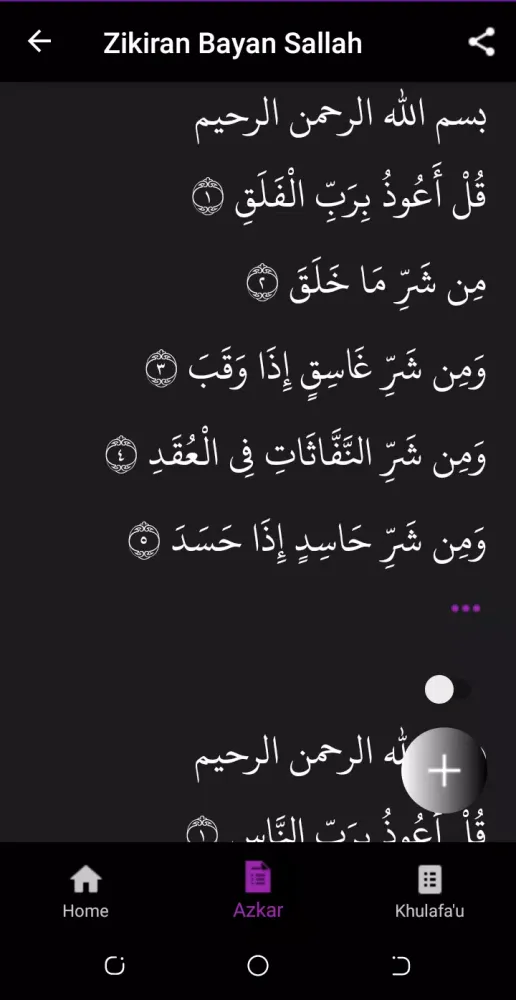 Zikiran Bayan Sallah
بسم الله الرحمن الرحيم
قُلْ أَعُوذُ بِرَبِّ الْفَلَقِ ١
مِن شَرِّ مَا خَلَقَ ٢
وَمِن شَرِّ غَاسِقٍ إِذَا وَقَبَ ٣
وَمِن شَرِّ النَّفَّاثَاتِ فِي الْعُقَدِ ٤
وَمِن شَرِّ حَاسِدٍ إِذَا حَسَدَ ٥
الله الرحمن الرحيم
قُلْ أَعُوذُ بِرَبِّ النَّاسِ ١
Home
Azkar
Khulafa'u